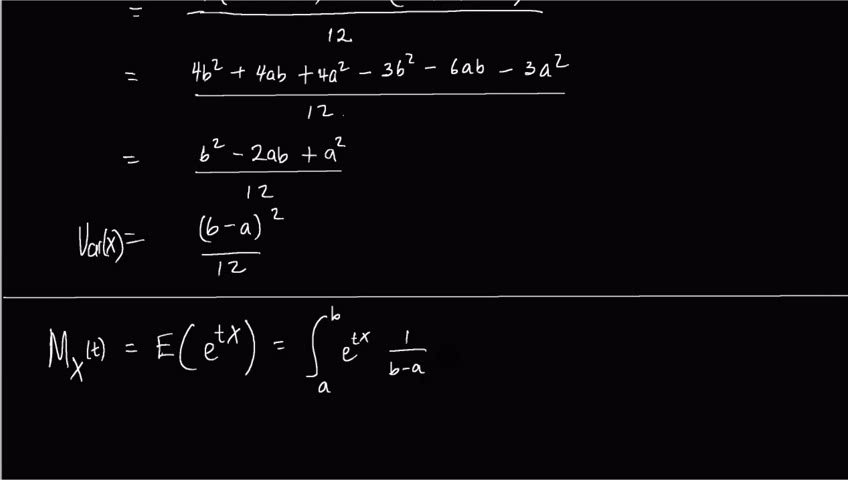 =
12
= 4b² + 4ab + 4a² - 3b² - 6ab - 3a²
12
= b² - 2ab + a²
12
Var(x) = (b-a)²
12
M_X(t) = E(e^{tX}) = ∫_a^b e^{tx} 1/(b-a)